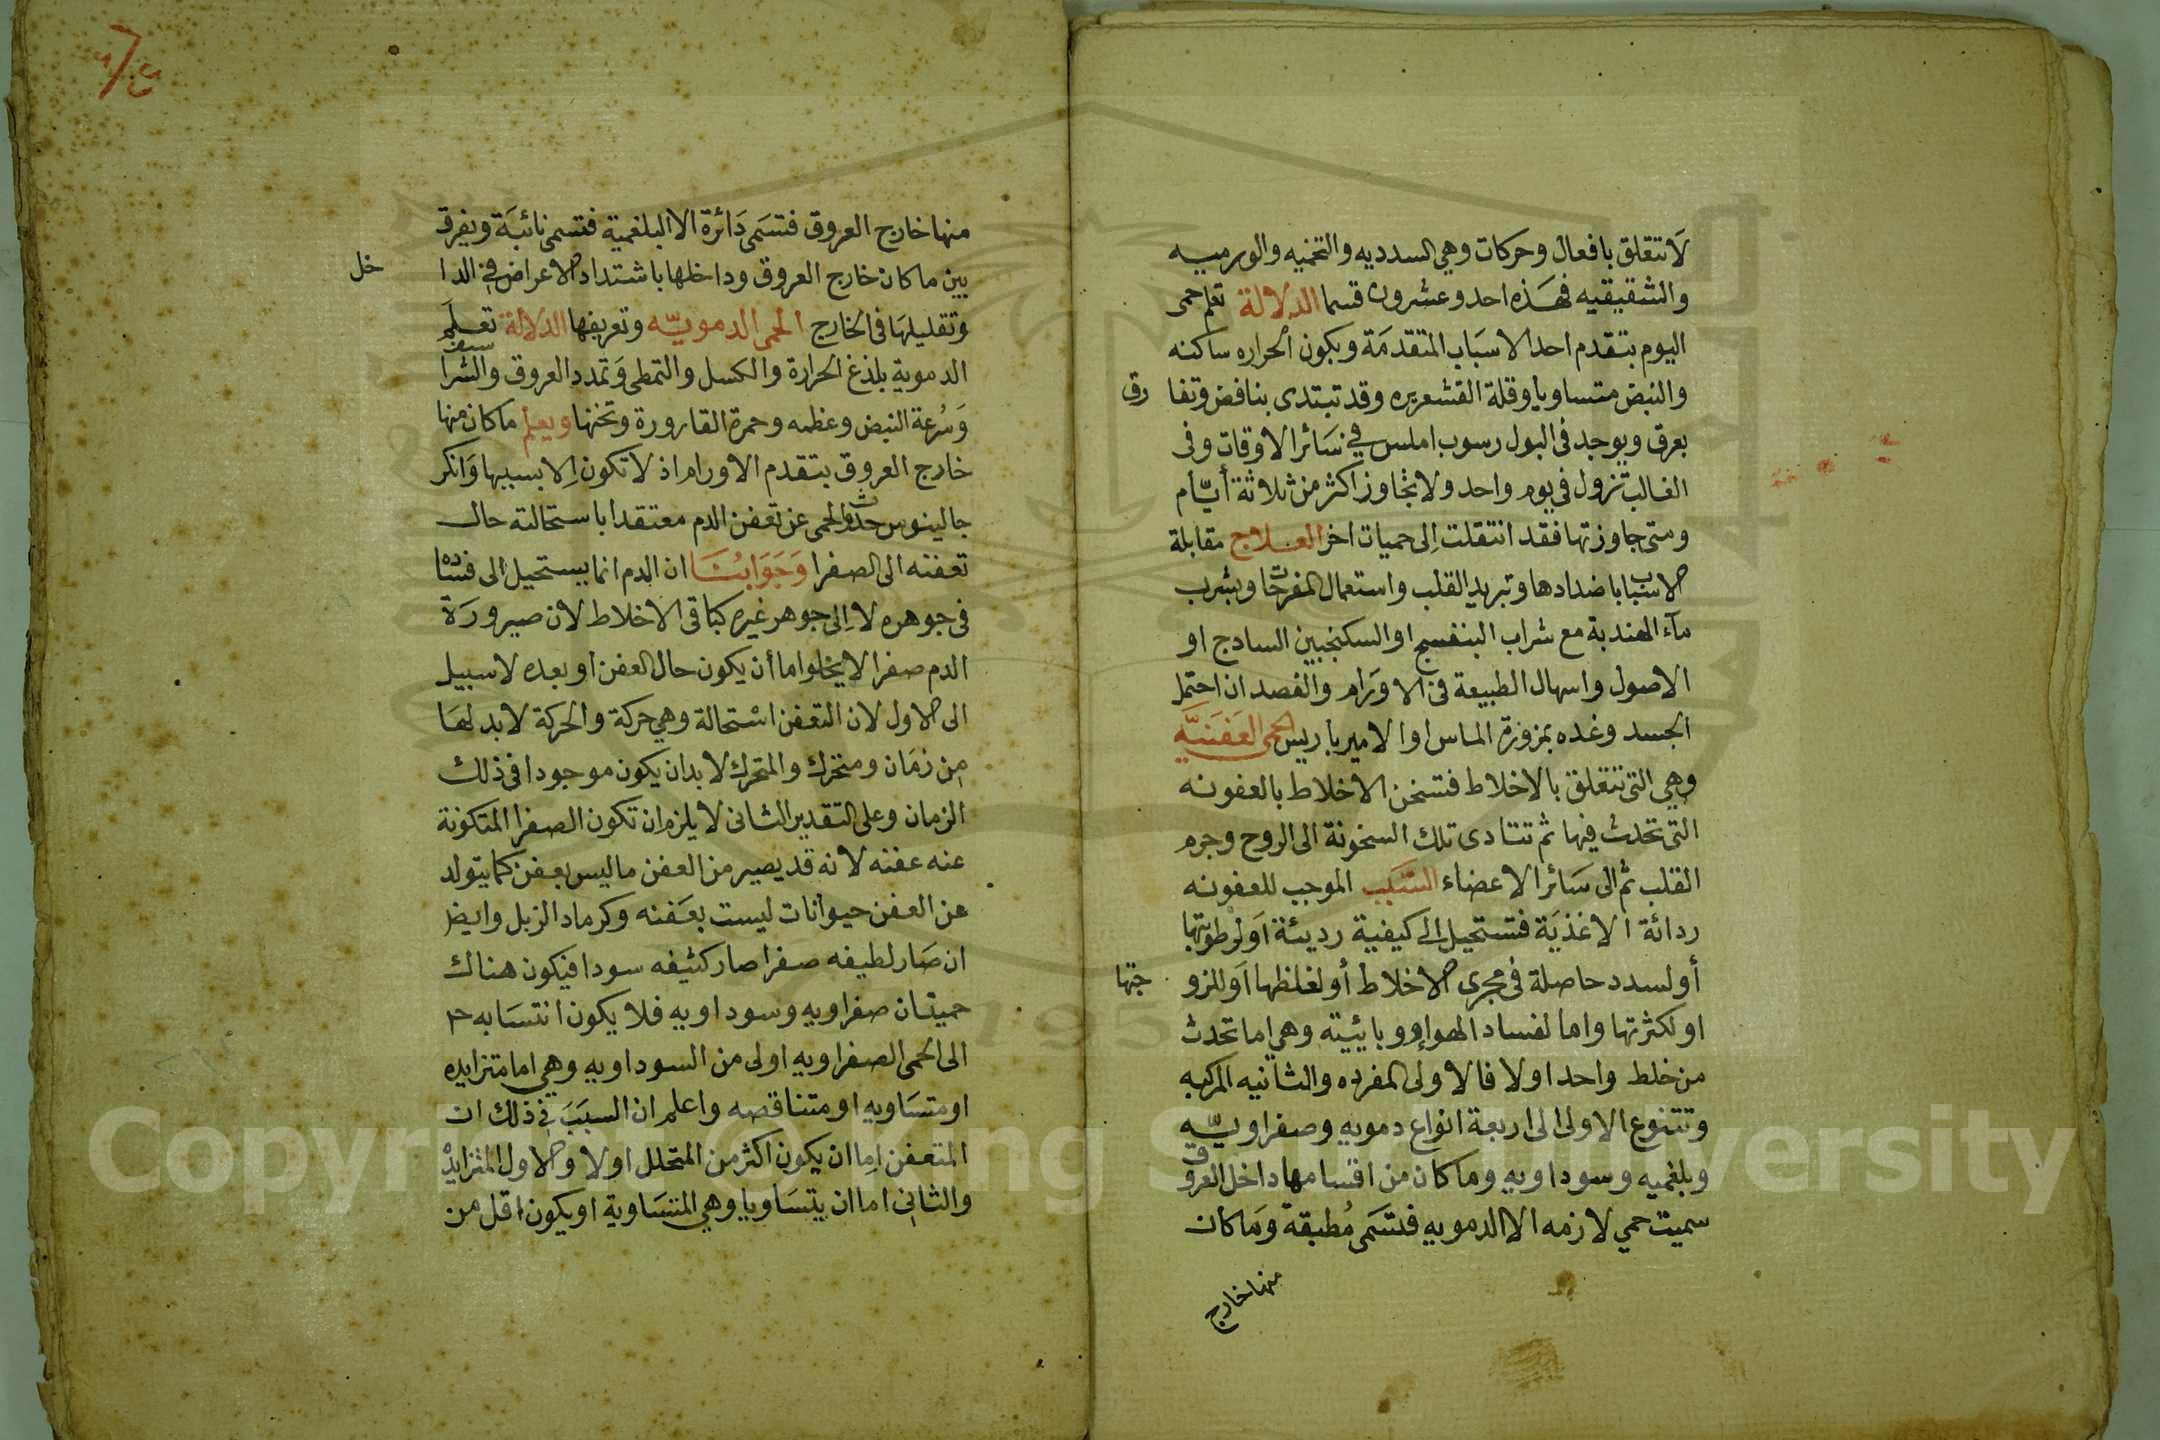 لا تتعلق بافعال وحركات وهي السدديه والتخميه والورميـه
والشقيقيه فهذه احد وعشرون قسما الدلالة تعلم حمى
اليوم بتقدم احد الاسباب المتقدمة وبكون الحراره ساكنه
والنبض متساويا وقلة القشعريره وقد تبتدى بنافض وتفا رق
بعرق ويوجد فى البول رسوب املس في سائر الاوقات وفى
الغالب تزول فى يوم واحد ولا تجاوز اكثر من ثلاثة أيّام
ومتى جاوزتها فقد انتقلت إلى حميات اخر العـلاج مقابلة
الاسباب باضدادها وتبريد القلب واستعمال المفرحات وبشرب
مآء الهندبة مع شراب البنفسج او السكنجبين السادج او
الاصول واسهال الطبيعة فى الاورام والفصد ان احتمل
الجسد وغده بمزورة الماس او الاميرباريس الحمى العَفَنيَّه
وهي التى تتعلق بالاخلاط فتسخن الاخلاط بالعفونه
التى تحدث فيها ثم تتادى تلك السخونة الى الروح وجرم
القلب ثم الى سائر الاعضاء السَّبَب الموجب للعفونه
ردائة الاغذية فتستحيل الى كيفية رديئة أو لرطوبتها
أو لسدد حاصلة فى مجرى الاخلاط أو لغلظها أو للزو جتها
او لكثرتها واما لفساد الهواء ووبائيته وهي اما تحدث
من خلط واحد اولا فالاولى المفرده والثانيه المركبه
وتتنوع الاولى الى اربعة انواع دمويه وصفراويّه
وبلغميه وسوداويه وما كان من اقسامها داخل العروق
سميت حمي لازمه الا الدمويه فتسَمى مُطبقة وَما كان
منها خارج
منها خارج العروق فتسَمى دَائرة الا البلغمية فتسمى نائبَة ويفرق
بين ما كان خارج العروق وداخلها باشتداد الاعراض في الدا خل
وتقليلها فى الخارج الحمى الدمويّه وتعريفها الدلالة تعـلم
الدموية بلذع الحرارة والكسل والتمطى وَتمدد العروق والشراسف
وَسُرعة النبض وعظمه وحمرة القارورة وثخنها ويعلم ما كان منها
خارج العروق بتقدم الاورام اذ لا تكون إلا بسببها وَانكر
جالينوس حدوث الحمى عن تعفن الدم معتقدا باستحالته حال
تعفنه الى الصفرا وَجَوَابُنَا ان الدم انما يستحيل الى فساده
فى جوهره لا إلى جوهر غيره كباقى الاخلاط لان صيرورَة
الدم صفرا لا يخلوا ما أن يكون حال العفن او بعده لا سبيل
الى الاول لان التعفن اسْتحالة وهي حركة والحركة لا بد لها
من زمَان ومتحرك والمتحرك لا بد ان يكون موجودا فى ذلك
الزمان وعلى التقدير الثانى لا يلزم ان تكون الصفرا المتكونة
عنه عفنه لانه قد يصير من العفن ما ليس بعفن كما يتولد
عن العفن حيوانات ليست بعَفنه وكرماد الزبل وايضا
ان صَار لطيفه صفرا صار كثيفه سودا فيكون هناك
حميتان صفراويه وسوداويه فلا يكون انتسَابه ح
الى الحمى الصفراويه اولى من السوداويه وهي اما متزايده
او متسَاويه او متناقصه واعلم ان السبَبَ في ذلك ان
المتعفن إما ان يكون اكثر من المتحلل اولا والاول المتزايدْ
والثانى اما ان يتسَاويا وهي المتسَاوية او يكون اقل من